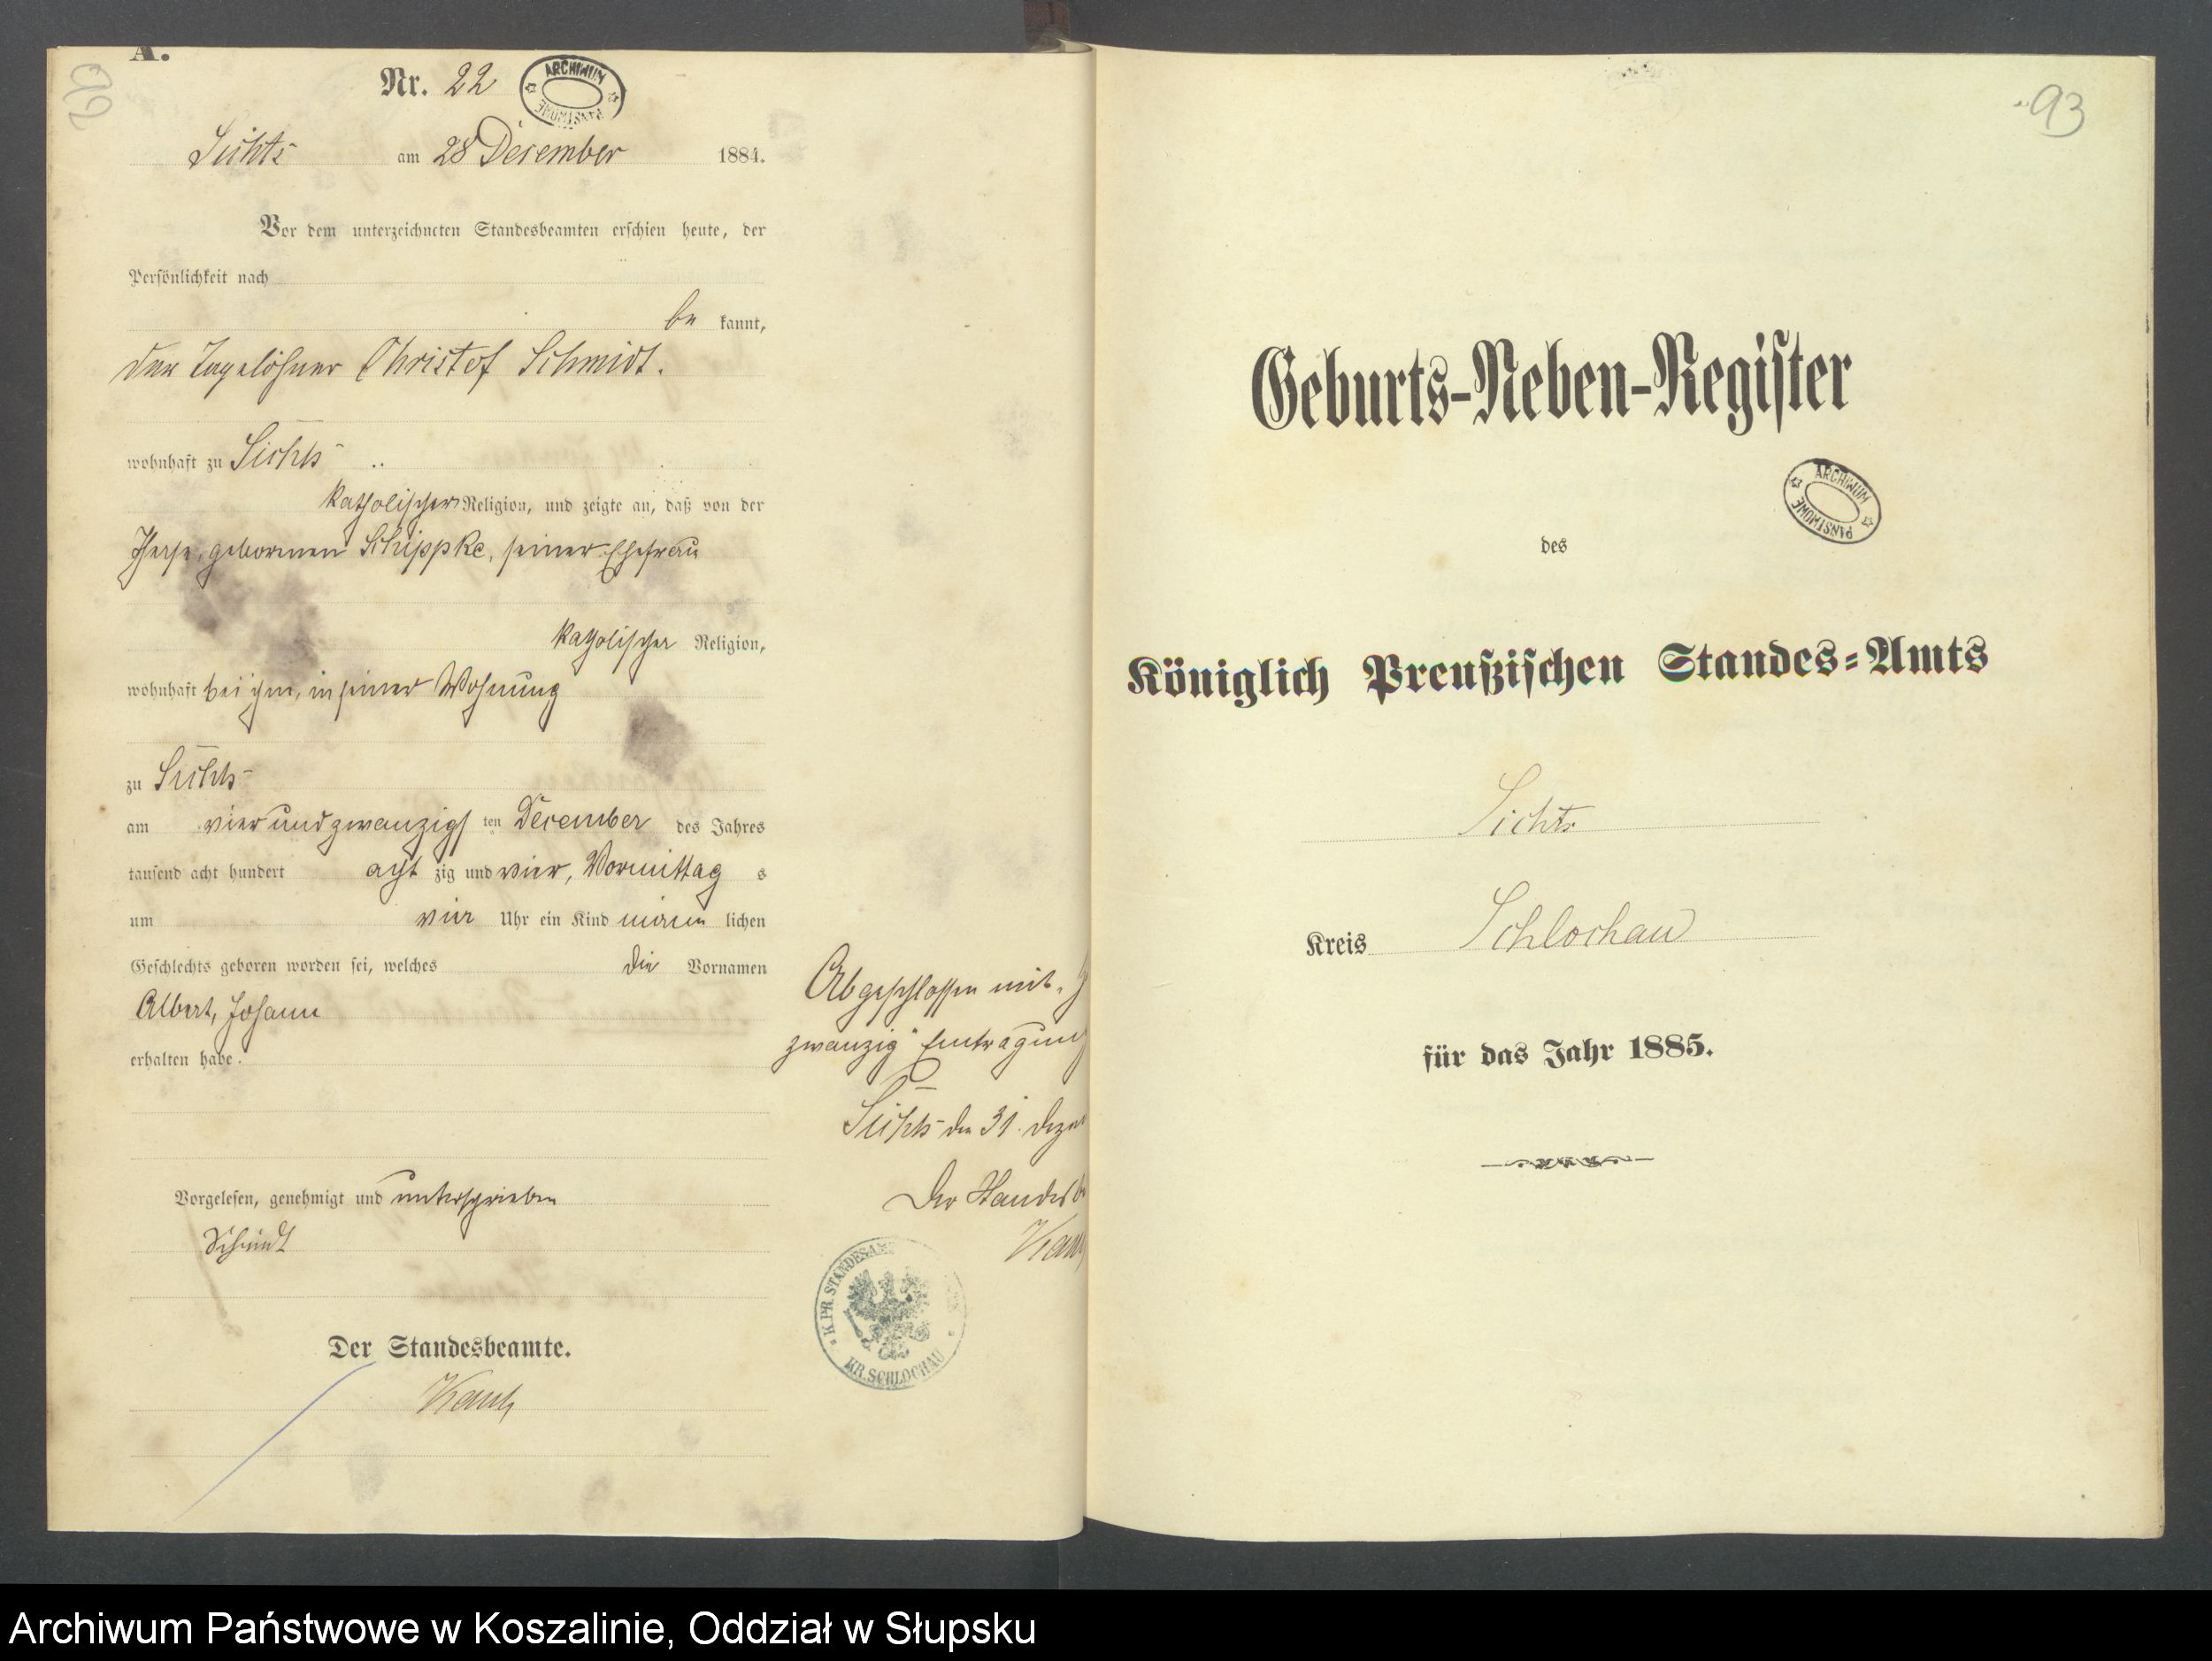 A.
Nr. 22
ARCHIWUM PAŃSTWOWE
Sichts am 28 December 1884.
Vor dem unterzeichneten Standesbeamten erschien heute, der
Persönlichkeit nach
be kannt,
der Tagelöhner Christof Schmidt.
wohnhaft zu Sichts
katholischer Religion, und zeigte an, daß von der
geborenen Schippke, seiner Ehefrau
katholischer Religion,
wohnhaft bei ihm, in seiner Wohnung
zu Sichts
am vierundzwanzigs ten December des Jahres
tausend acht hundert acht zig und vier, Vormittag s
um vier Uhr ein Kind männ lichen
Geschlechts geboren worden sei, welches die Vornamen
Albert, Johann
erhalten habe.
Vorgelesen, genehmigt und unterschrieben
Schmidt
Der Standesbeamte.
Abgeschlossen mit
zwanzig Eintragung
Sichts den 31. Deze
Der Standesb
K. PR. STANDESAM
KR. SCHLOCHAU
93
Geburts-Neben-Register
ARCHIWUM PAŃSTWOWE
des
Königlich Preußischen Standes-Amts
Sichts
Kreis Schlochau
für das Jahr 1885.
Archiwum Państwowe w Koszalinie, Oddział w Słupsku